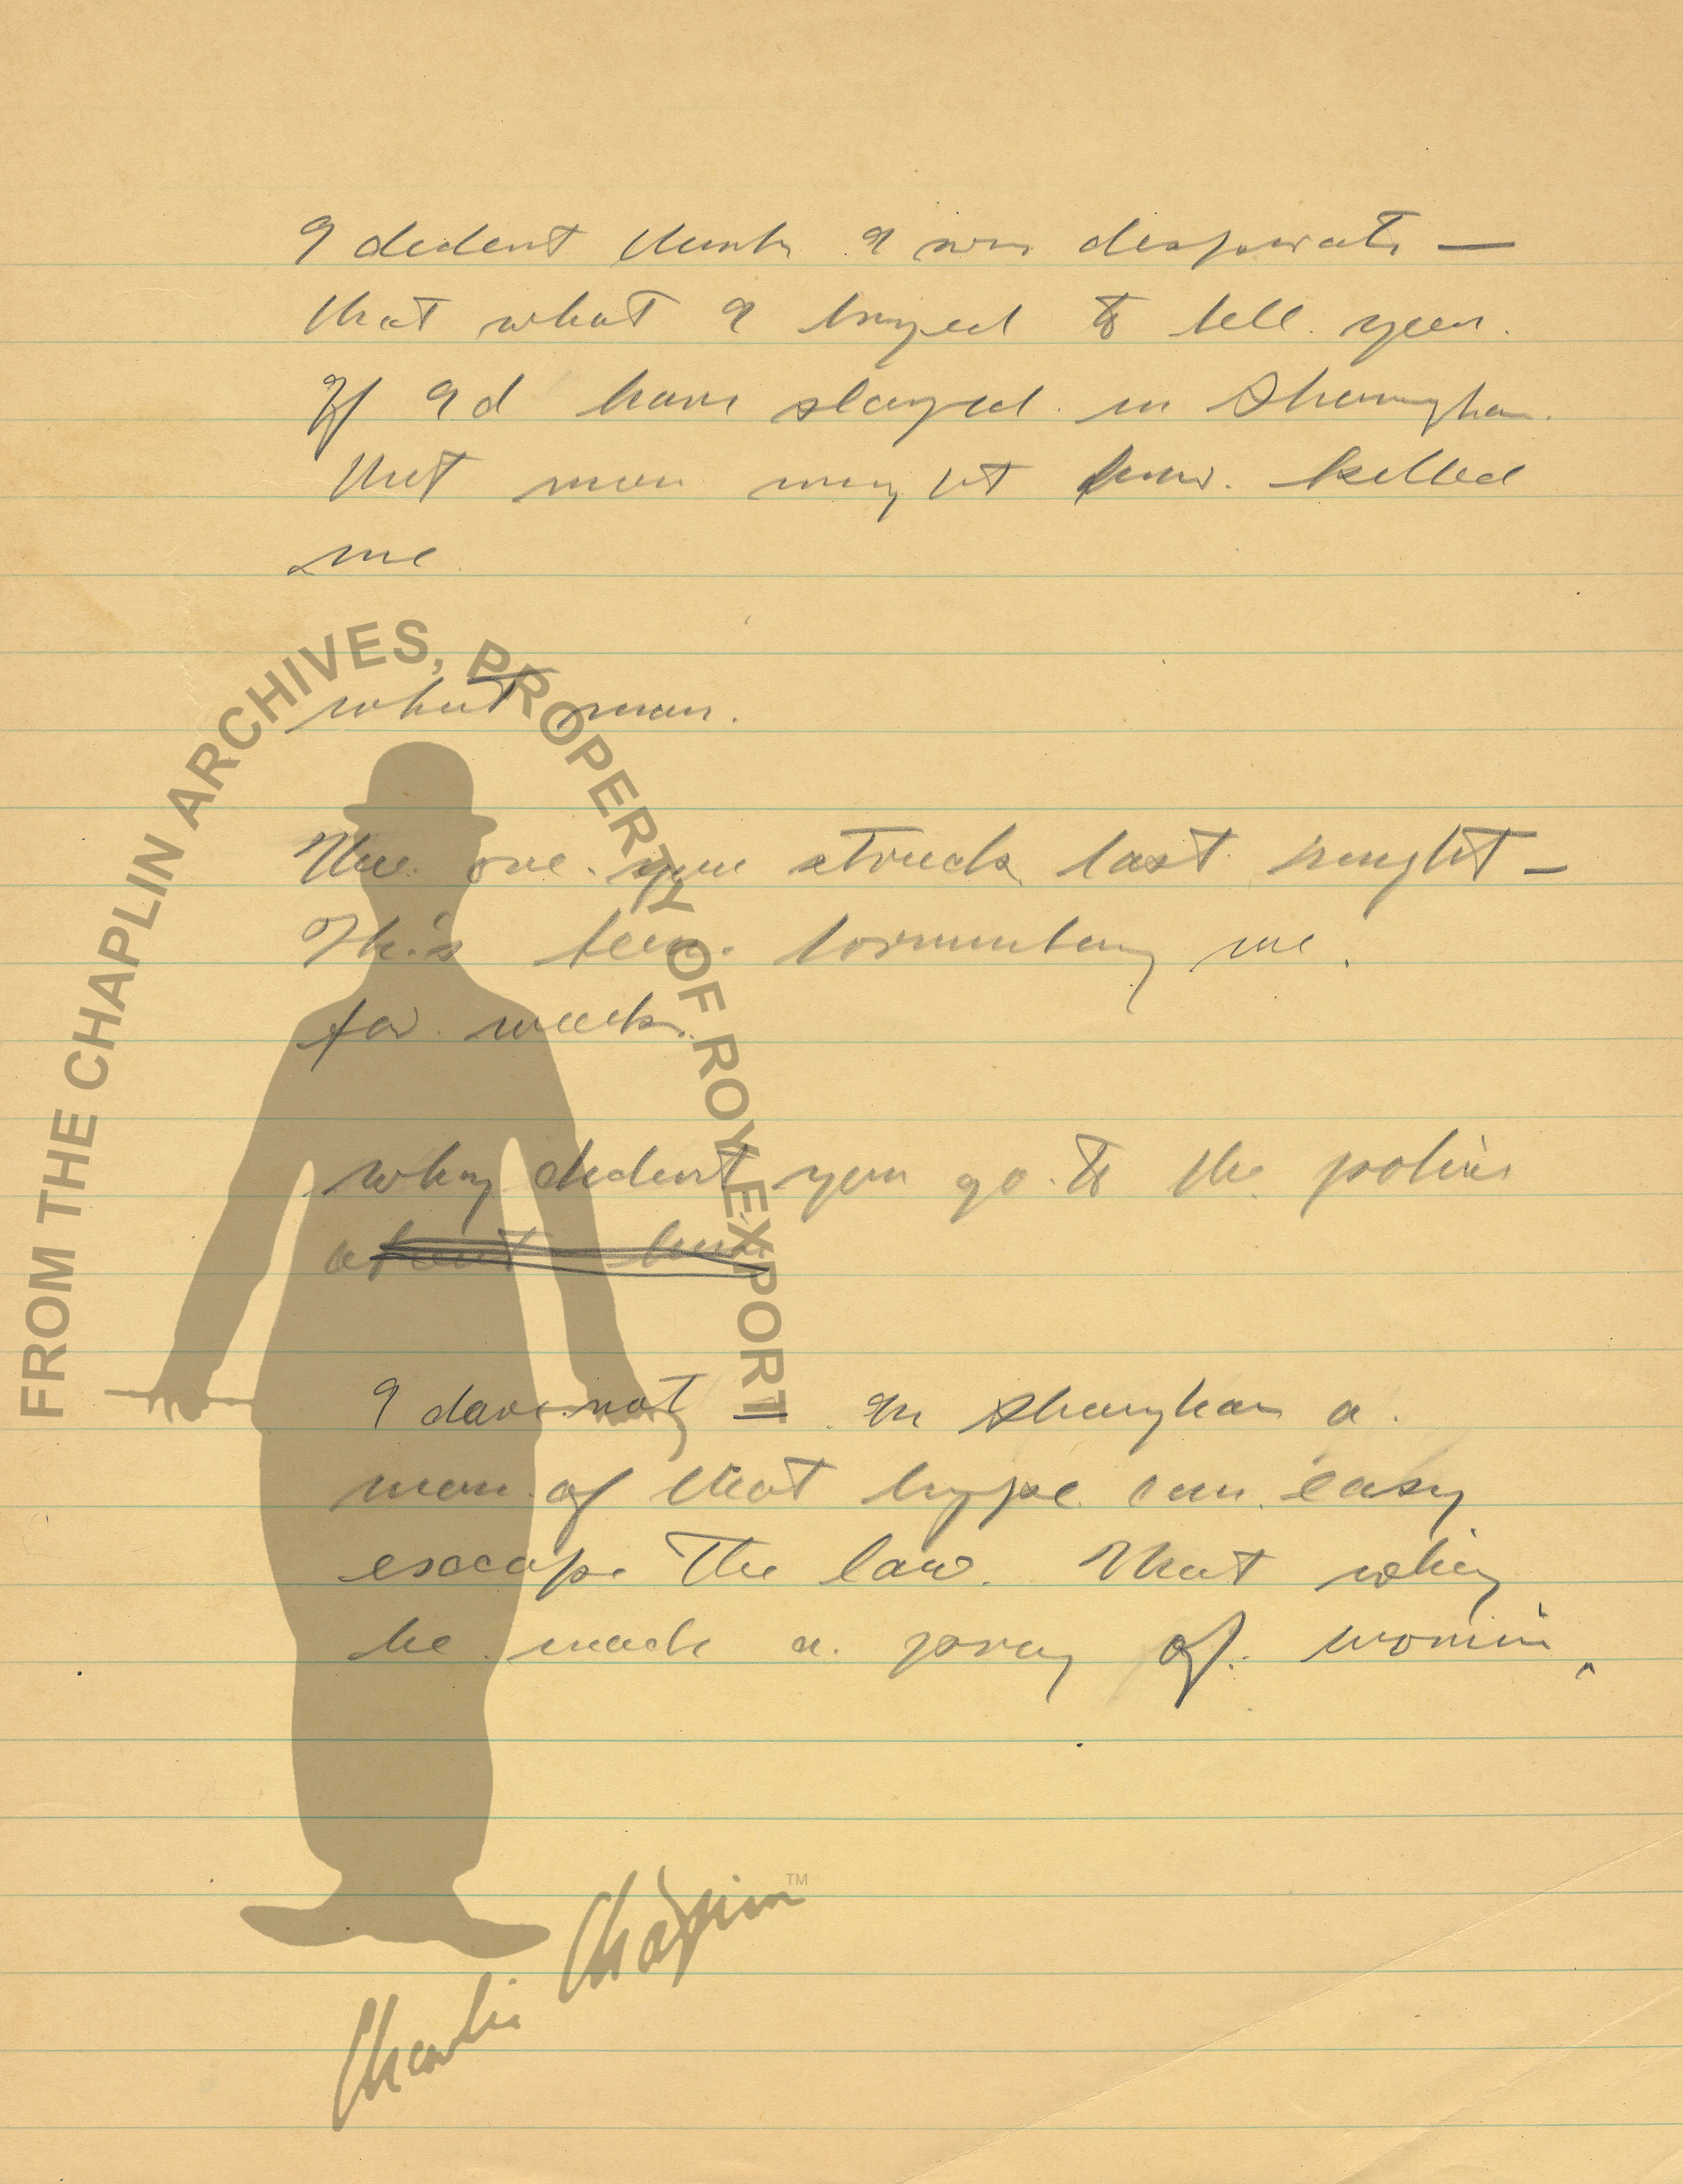 I dident think I was desperate —
that what I tryed to tell you.
If I d have stayed in Shanghai.
that man might have killed
me
what man.
The one you struck last night —
He's been tormenting me.
for weeks.
why dident you go to the police
about him
I dare not — In Shanghai a
man of that type can easy
escape the law. That why
he made a pray of women
FROM THE CHAPLIN ARCHIVES, PROPERTY OF ROY EXPORT
Charlie Chaplin™